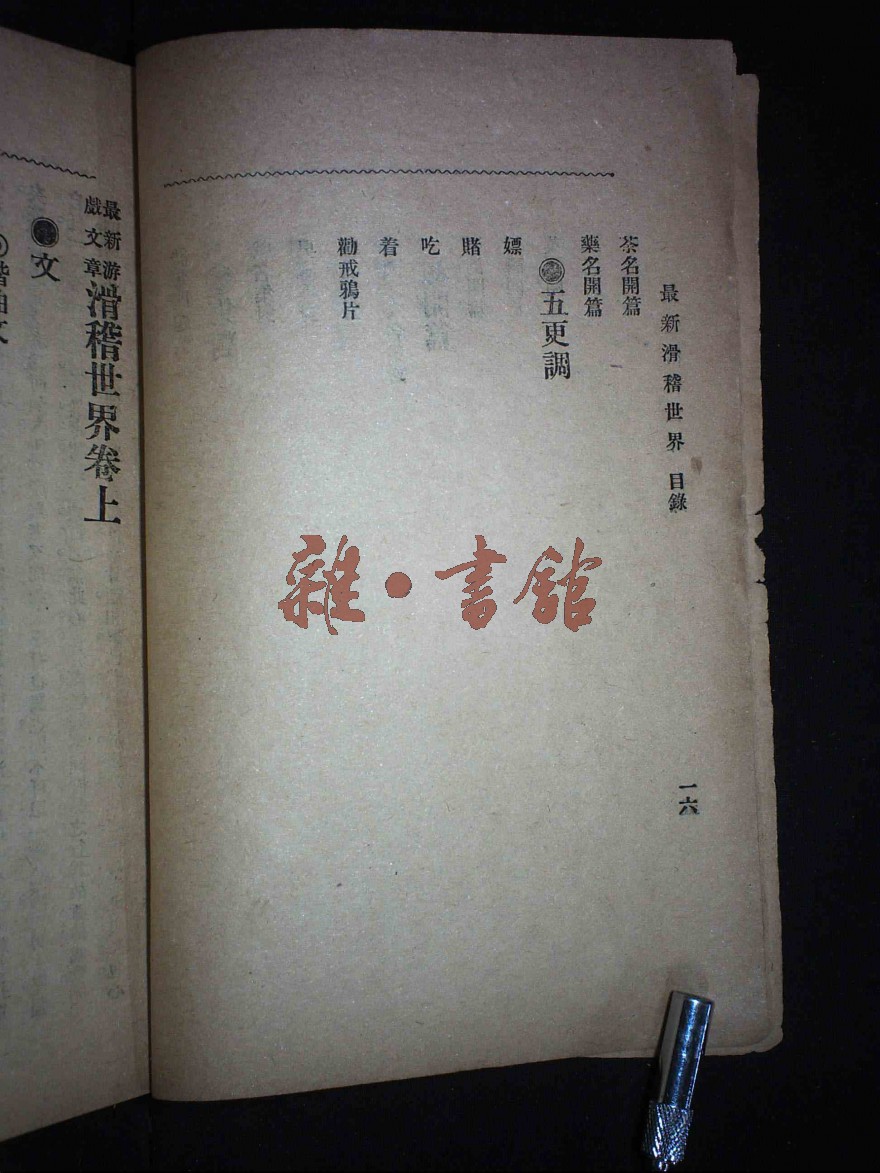 最新滑稽世界 目錄
一六
茶名開篇
藥名開篇
五更調
嫖
賭
吃
着
勸戒鴉片
雜·書館
最新游戲文章滑稽世界卷上
文